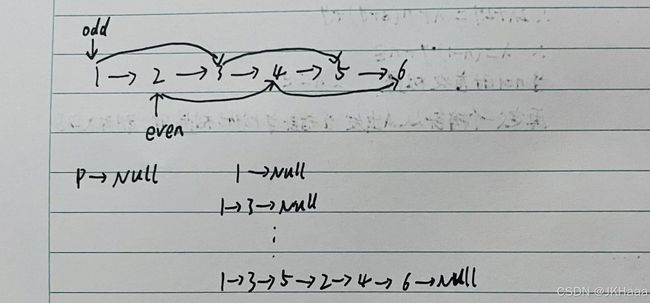 odd
1 → 2 → 3 → 4 → 5 → 6
even
P → Null 1 → Null
1 → 3 → Null
⋮
1 → 3 → 5 → 2 → 4 → 6 → Null
CSDN @JKHaaa